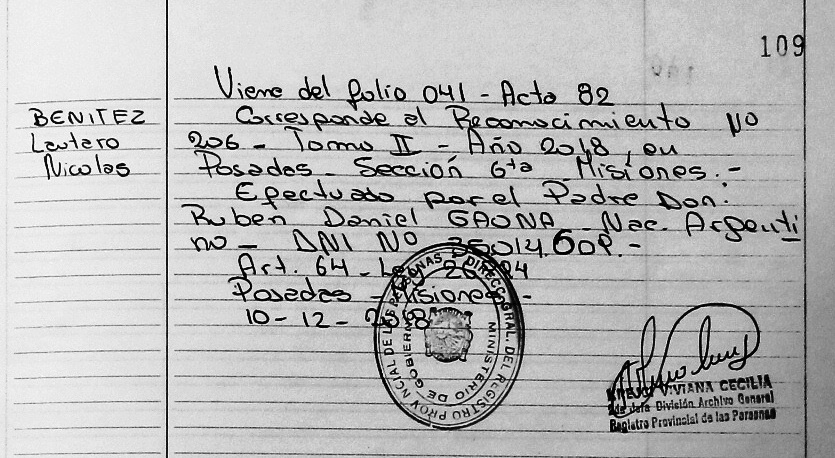 109
Viene del folio 041 - Acta 82
BENITEZ
Lautaro
Nicolas
Corresponde al Reconocimiento No
206 - Tomo II - Año 2018, en
Posadas - Sección 6ta Misiones.-
Efectuado por el Padre Don:
Ruben Daniel GAONA - Nac. Argenti
no - DNI No
Art. 64 - Ley
Posadas - Misiones -
10-12-2018
DIRECC. GRAL. DEL REGISTRO PROVINCIAL DE LAS PERSONAS
MINISTERIO DE GOBIERNO
VIVIANA CECILIA
Jefa División Archivo General
Registro Provincial de las Personas